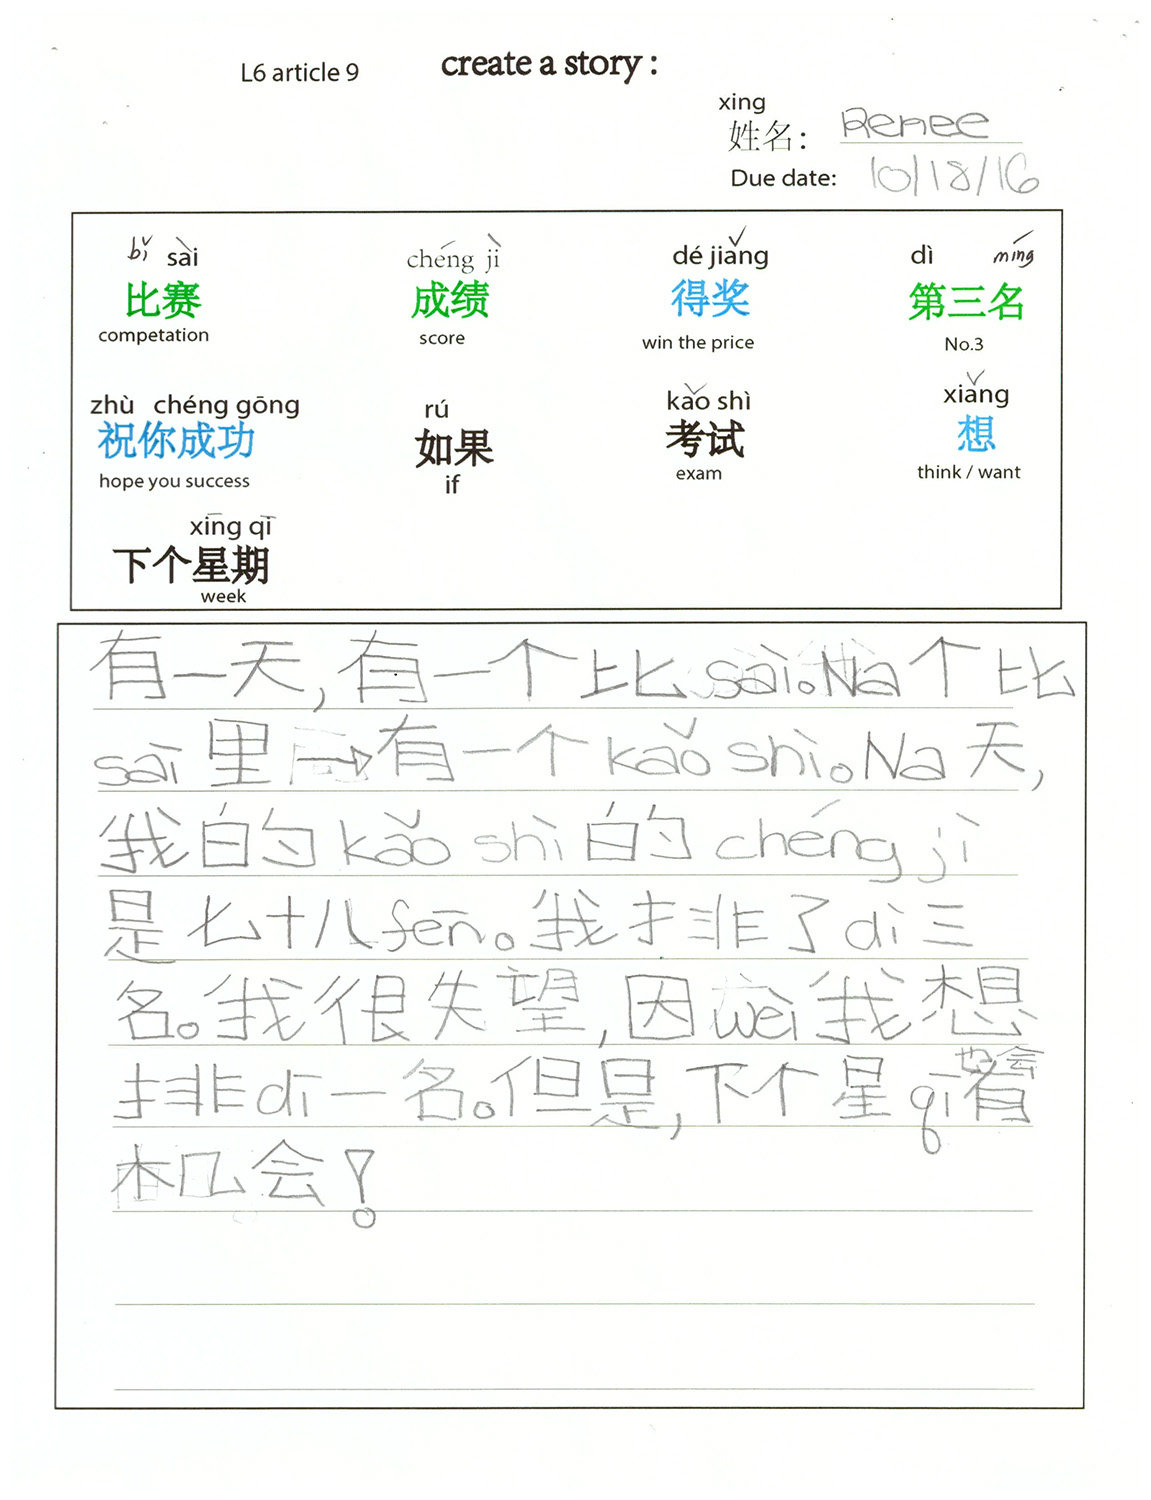 L6 article 9 create a story :
xing
姓名： Renee
Due date: 10/18/16
bǐ sài chéng jì dé jiǎng dì míng
比赛 成绩 得奖 第三名
competation score win the price No.3
zhù chéng gōng rú kǎo shì xiǎng
祝你成功 如果 考试 想
hope you success if exam think / want
xīng qī
下个星期
week
有一天，有一个比sài。Na个比
sāi里有一个kǎo shì。Na天，
我的kǎo shì的chéng jì
是七十八fēn。我排了dì三
名。我很失望，因wèi我想
排dī一名。但是，下个星qī也会有
机会！